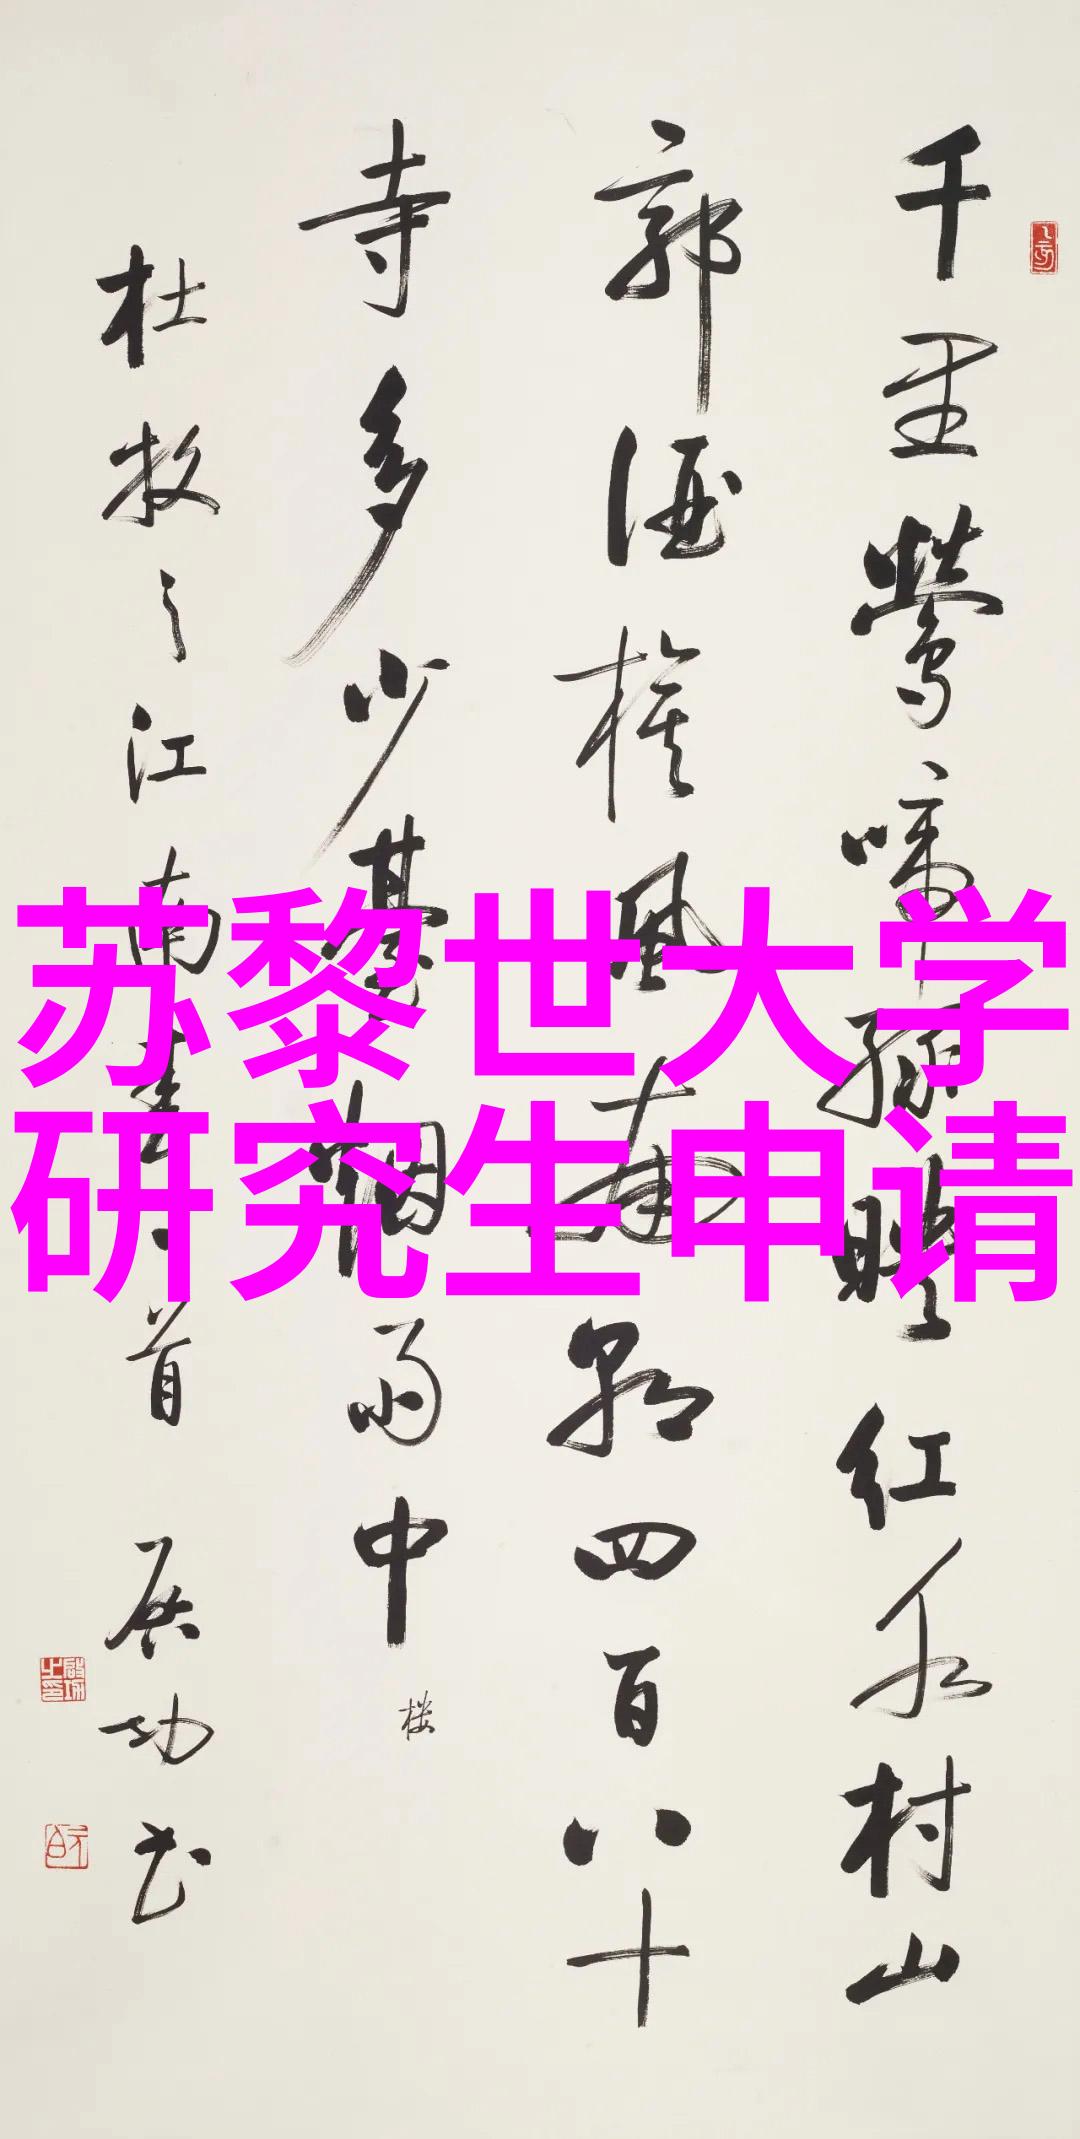 苏黎世大学
研究生申请
千里鶯啼綠暎紅水村山
郭酒旗風南朝四百八十
寺多少臺烟雨中
楼
杜牧之江南春一首 启功书